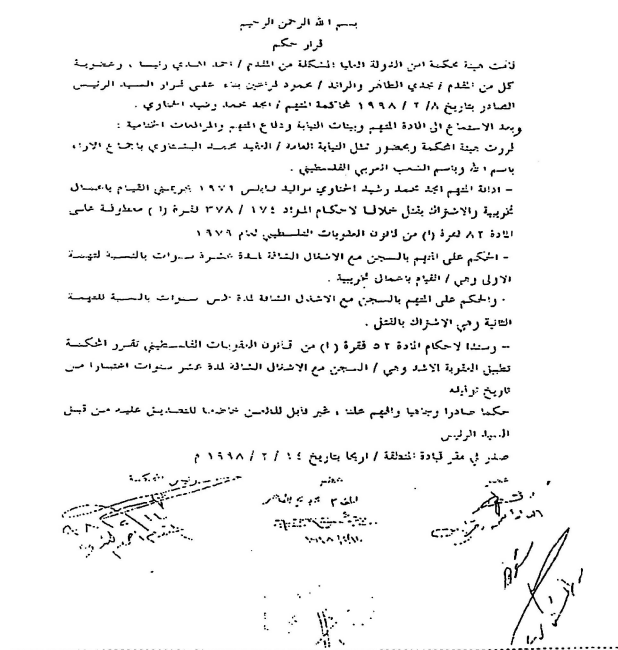 بسم الله الرحمن الرحيم
قرار حكم
قامت هيئة محكمة امن الدولة العليا المشكلة من المقدم / احمد رئيسا ، وعضوية
كل من المقدم / الطاهر والرائد / محمود بناء على قرار السيد الرئيس
الصادر بتاريخ ٨ / ٢ / ١٩٩٨ لمحاكمة المتهم / امجد محمد رشيد الحناوي .
وبعد الاستماع الى افادة المتهم وبينات النيابة ودفاع المتهم والمرافعات الختامية :
قررت هيئة المحكمة وبحضور ممثل النيابة العامة / العقيد محمد باجماع الاراء
باسم الله وباسم الشعب العربي الفلسطيني .
– ادانة المتهم امجد محمد رشيد الحناوي مواليد نابلس ١٩٧١ بجريمتي القيام باعمال
تخريبية والاشتراك بقتل خلافا لاحكام المواد ١٧٤ / ٣٧٨ فقرة ( أ ) معطوفة على
المادة ٨٢ فقرة ( أ ) من قانون العقوبات الفلسطيني لعام ١٩٧٩
– الحكم على المتهم بالسجن مع الاشغال الشاقة لمدة عشرة سنوات بالنسبة لتهمة
الاولى وهي / القيام باعمال تخريبية .
· والحكم على المتهم بالسجن مع الاشغال الشاقة لمدة خمس سنوات بالنسبة للتهمة
الثانية وهي الاشتراك بالقتل .
– وسندا لاحكام المادة ٥٢ فقرة ( أ ) من قانون العقوبات الفلسطيني تقرر المحكمة
تطبيق العقوبة الاشد وهي / السجن مع الاشغال الشاقة لمدة عشر سنوات اعتبارا من
تاريخ توقيفه
حكما صادرا وجاهيا وافهم علنا ، غير قابل للطعن خاضعا للتصديق عليه من قبل
السيد الرئيس
صدر في مقر قيادة المنطقة / اريحا بتاريخ ١٤ / ٢ / ١٩٩٨ م
عضو عضو رئيس المحكمة